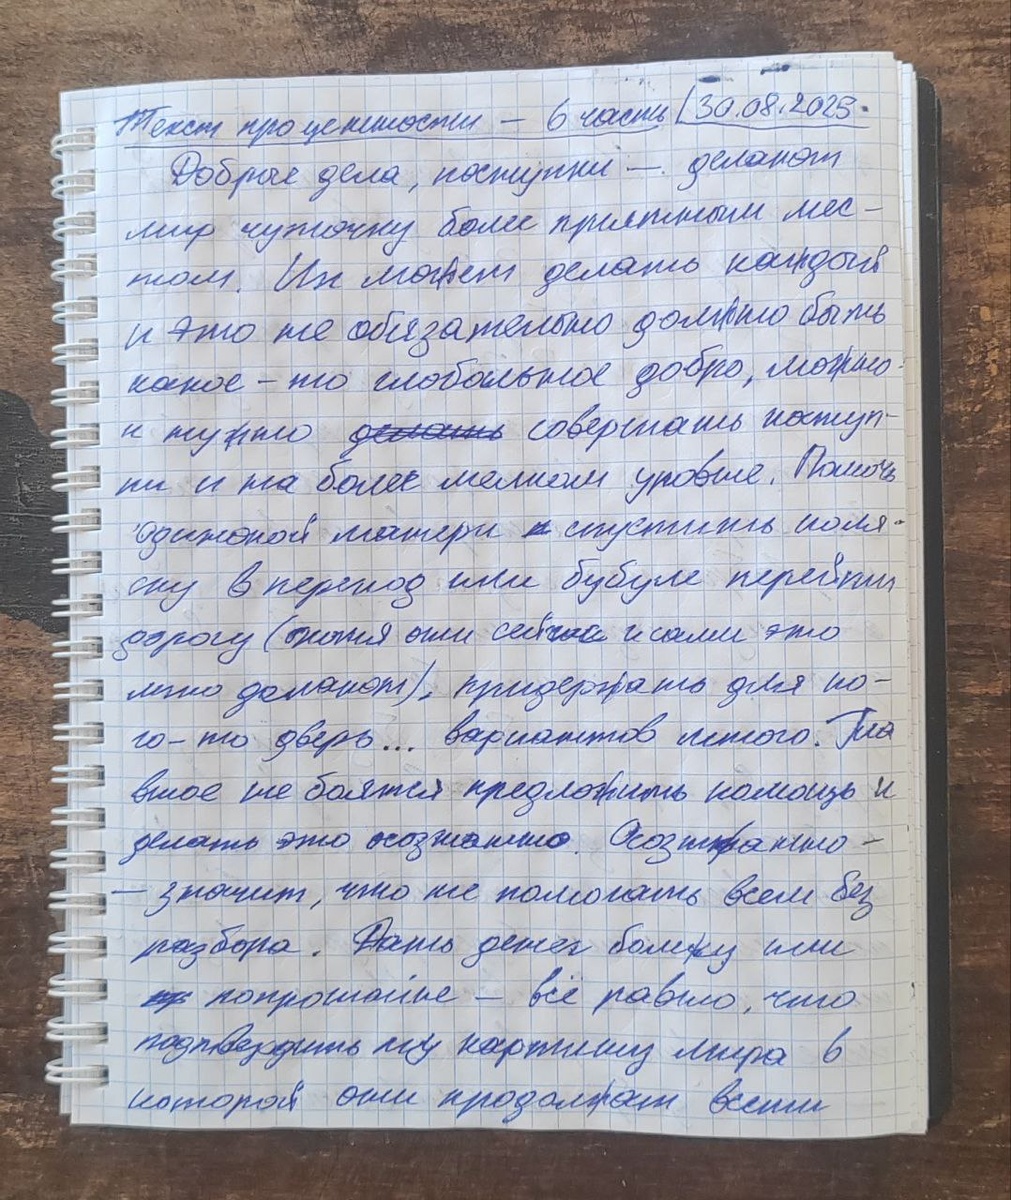 Текст про ценности – 6 часть | 30.08.2025.
Добрые дела, поступки – делают
мир чуточку более приятным мес-
том. Их может делать каждый
и это не обязательно должно быть
какое-то глобальное добро, можно
и нужно делать совершать поступ-
ки и на более мелком уровне. Помочь
одинокой матери спустить коля-
ску в переход или бабуле перейти
дорогу (хотя они сейчас и сами это
делают), придержать для ко-
го-то дверь... вариантов много. Гла
вное не боятся предложить помощь и
делать это осознанно. Осознанно –
– значит, что не помогать всем без
разбора. Дать денег бомжу или
попрошайке – всё равно, что
подтвердить ту картину мира в
которой они продолжат вести